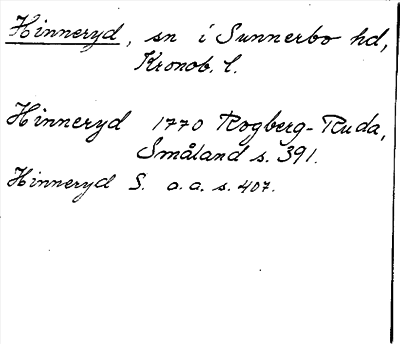 Hinneryd, sn i Sunnerbo hd,
Kronob. l.
Hinneryd 1770 Rogberg-Ruda,
Småland s. 391.
Hinneryd S. a.a. s. 407.